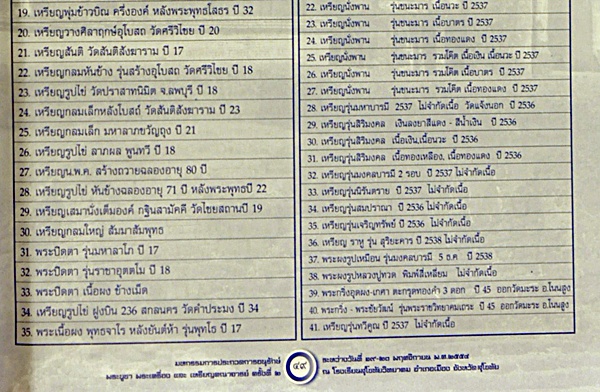 19. เหรียญพุ่มข้าวบิณ ครึ่งองค์ หลังพระพุทธโสธร ปี 32
20. เหรียญวางศิลาฤกษ์อุโบสถ วัดศรีวิไชย ปี 20
21. เหรียญสันติ วัดสันติสังฆาราม ปี 17
22. เหรียญกลมหันข้าง รุ่นสร้างอุโบสถ วัดศรีวิไชย ปี 18
23. เหรียญรูปไข่ วัดปราสาทนิมิต จ.ลพบุรี ปี 18
24. เหรียญกลมเล็กหลังโบสถ์ วัดสันติสังฆาราม ปี 23
25. เหรียญกลมเล็ก มหาลาภขวัญถุง ปี 21
26. เหรียญรูปไข่ ลาภผล พูนทวี ปี 18
27. เหรียญน.พ.ค. สร้างถวายฉลองอายุ 80 ปี
28. เหรียญรูปไข่ หันข้างฉลองอายุ 71 ปี หลังพระพุทธปี 22
29. เหรียญเสมานั่งเต็มองค์ กฐินสามัคคี วัดไชยสถานปี 19
30. เหรียญกลมใหญ่ สัมมาสัมพุทธ
31. พระปิดตา รุ่นมหาลาโภ ปี 17
32. พระปิดตา รุ่นราชาอุตตโม ปี 18
33. พระปิดตา เนื้อผง ข้างเม็ด
34. เหรียญรูปไข่ ฝูงบิน 236 สกลนคร วัดคำประมง ปี 34
35. พระเนื้อผง พุทธจาโร หลังยันต์ห้า รุ่นพุทโธ ปี 17
22. เหรียญนั่งพาน รุ่นชนะมาร เนื้อนวะ ปี 2537
23. เหรียญนั่งพาน รุ่นชนะมาร เนื้อบาตร ปี 2537
24. เหรียญนั่งพาน รุ่นชนะมาร เนื้อทองแดง ปี 2537
25. เหรียญนั่งพาน รุ่นชนะมาร รวมโค๊ต เนื้อเงิน เนื้อนวะ ปี 2537
26. เหรียญนั่งพาน รุ่นชนะมาร รวมโค๊ต เนื้อบาตร ปี 2537
27. เหรียญนั่งพาน รุ่นชนะมาร รวมโค๊ต เนื้อทองแดง ปี 2537
28. เหรียญรุ่นมหาบารมี 2537 ไม่จำกัดเนื้อ วัดแจ้งนอก ปี 2536
29. เหรียญรุ่นสิริมงคล เงินลงยาสีแดง - สีน้ำเงิน ปี 2536
30. เหรียญรุ่นสิริมงคล เนื้อเงิน,เนื้อนวะ ปี 2536
31. เหรียญรุ่นสิริมงคล เนื้อทองเหลือง, เนื้อทองแดง ปี 2536
32. เหรียญรุ่นมงคลบารมี 2 รอบ ปี 2537 ไม่จำกัดเนื้อ
33. เหรียญรุ่นนิรันตราย ปี 2537 ไม่จำกัดเนื้อ
34. เหรียญรุ่นสมปรารถนา ปี 2536 ไม่จำกัดเนื้อ
35. เหรียญรุ่นเจริญทรัพย์ ปี 2536 ไม่จำกัดเนื้อ
36. เหรียญ ราหู รุ่น สุริยะคราส ปี 2538 ไม่จำกัดเนื้อ
37. พระผงรูปเหมือน รุ่นมงคลบารมี 5 ธ.ค ปี 2538
38. พระผงรูปหลวงปู่ทวด พิมพ์สี่เหลี่ยม ไม่จำกัดเนื้อ
39. พระกริ่งอุดผง-เกศา ตะกรุดทองคำ 3 ดอก ปี 45 ออกวัดมะระ อ.โนนสูง
40. พระกริ่ง - พระชัยวัฒน์ รุ่นพระราชวิทยาคมเถระ ปี 45 ออกวัดมะระ อ.โนนสูง
41. เหรียญรุ่นทวีคูณ ปี 2537 ไม่จำกัดเนื้อ
มหกรรมการประกวดการอนุรักษ์
พระบูชา พระเครื่อง และ เหรียญคณาจารย์ ครั้งที่ ๒
๔๙
ระหว่างวันที่ ๑๙-๒๐ พฤศจิกายน พ.ศ.๒๕๕๔
ณ โรงเรียนสุโขทัยวิทยาคม อำเภอเมือง จังหวัดสุโขทัย